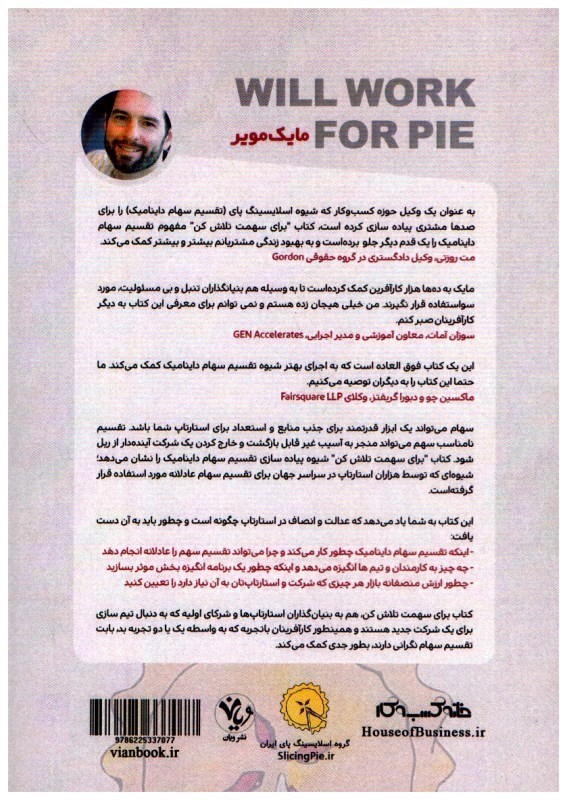 WILL WORK
FOR PIE مایک مویر
به عنوان یک وکیل حوزه کسب‌وکار که شیوه اسلایسینگ پای (تقسیم سهام داینامیک) را برای
صدها مشتری پیاده سازی کرده است، کتاب "برای سهمت تلاش کن" مفهوم تقسیم سهام
داینامیک را یک قدم دیگر جلو برده‌است و به بهبود زندگی مشتریانم بیشتر و بیشتر کمک می‌کند.
مت روزتی، وکیل دادگستری در گروه حقوقی Gordon
مایک به ده‌ها هزار کارآفرین کمک کرده‌است تا به وسیله هم بنیانگذاران تنبل و بی مسئولیت، مورد
سواستفاده قرار نگیرند. من خیلی هیجان زده هستم و نمی توانم برای معرفی این کتاب به دیگر
کارآفرینان صبر کنم.
سوزان آمات، معاون آموزشی و مدیر اجرایی، GEN Accelerates
این یک کتاب فوق العاده است که به اجرای بهتر شیوه تقسیم سهام داینامیک کمک می‌کند. ما
حتما این کتاب را به دیگران توصیه می‌کنیم.
ماکسین چو و دبورا گریفتز، وکلای Fairsquare LLP
سهام می‌تواند یک ابزار قدرتمند برای جذب منابع و استعداد برای استارتاپ شما باشد. تقسیم
نامناسب سهم می‌تواند منجر به آسیب غیر قابل بازگشت و خارج کردن یک شرکت آینده‌دار از ریل
شود. کتاب "برای سهمت تلاش کن" شیوه پیاده سازی تقسیم سهام داینامیک را نشان می‌دهد؛
شیوه‌ای که توسط هزاران استارتاپ در سراسر جهان برای تقسیم سهام عادلانه مورد استفاده قرار
گرفته‌است.
این کتاب به شما یاد می‌دهد که عدالت و انصاف در استارتاپ چگونه است و چطور باید به آن دست
یافت:
- اینکه تقسیم سهام داینامیک چطور کار می‌کند و چرا می‌تواند تقسیم سهم را عادلانه انجام دهد
- چه چیز به کارمندان و تیم ها انگیزه می‌دهد و اینکه چطور یک برنامه انگیزه بخش موثر بسازید
- چطور ارزش منصفانه بازار هر چیزی که شرکت و استارتاپ‌تان به آن نیاز دارد را تعیین کنید
کتاب برای سهمت تلاش کن، هم به بنیان‌گذاران استارتاپ‌ها و شرکای اولیه که به دنبال تیم سازی
برای یک شرکت جدید هستند و همینطور کارآفرینان باتجربه که به واسطه یک یا دو تجربه بد، بابت
تقسیم سهام نگرانی دارند، بطور جدی کمک می‌کند.
خانه کسب و کار
HouseofBusiness.ir
گروه اسلایسینگ پای ایران
SlicingPie.ir
نشر ویان
9786225337077
vianbook.ir